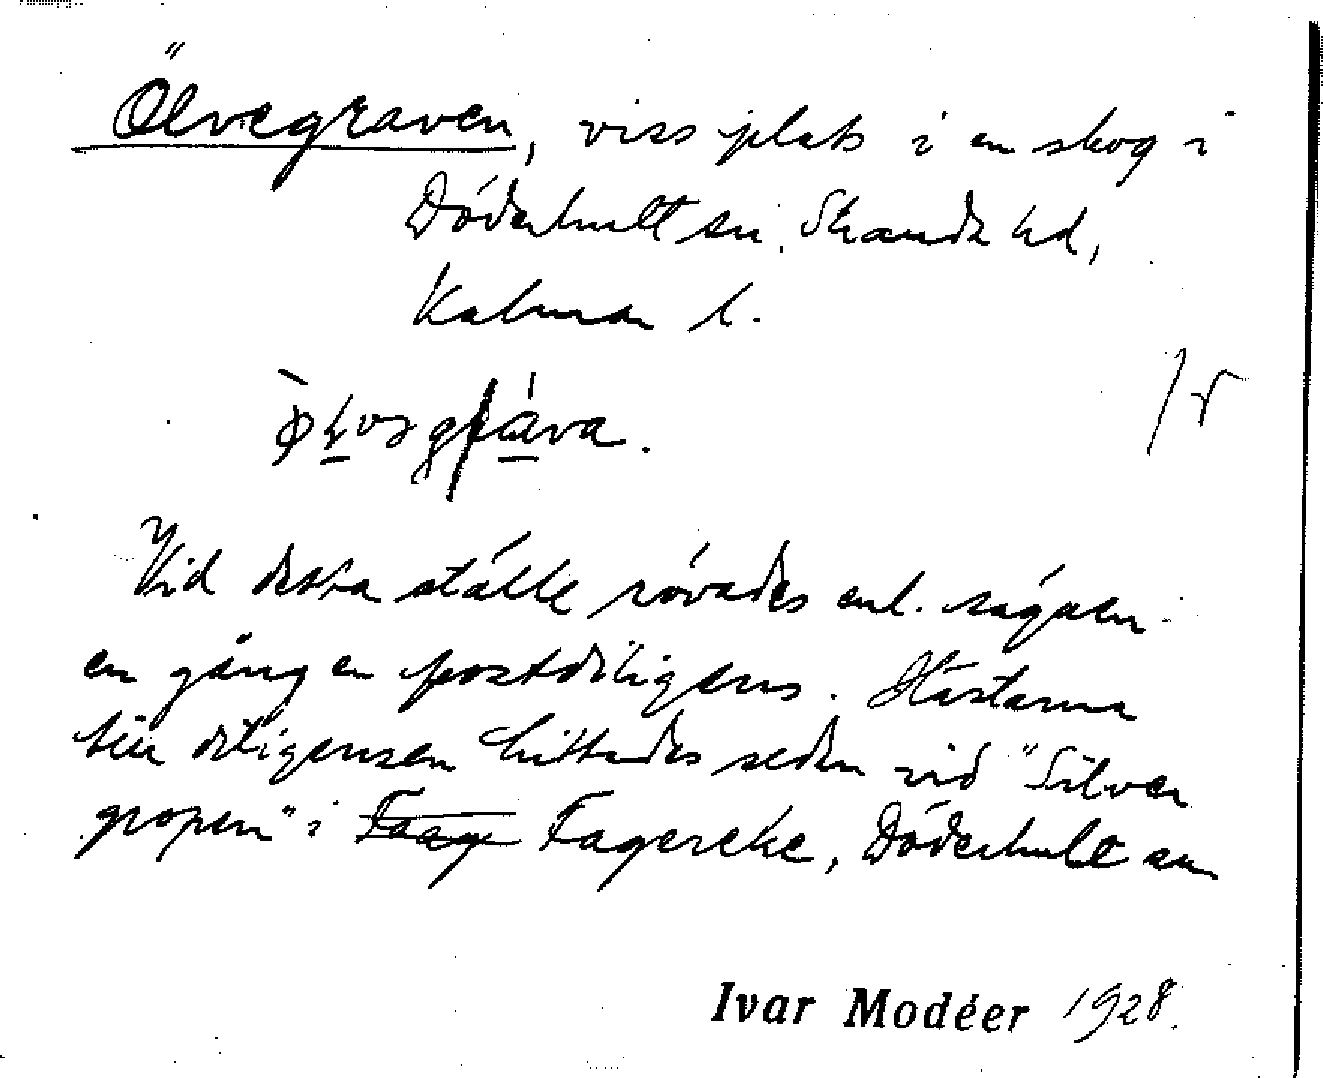 Ölvegraven, viss plats i en skog i
Döderhult sn, Stranda hd,
Kalmar l.
Vid detta ställe rövades enl. sägnen
en gång en postdiligens. Hästarna
till diligensen hittades sedan vid "Silver
gropen" i Faag Fagereke, Döderhult sn
Ivar Modéer 1928.